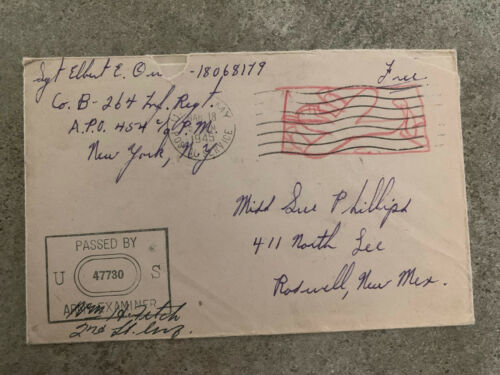 Sgt Elbert E. -18068179
Co. B-264 Inf. Regt.
A.P.O. 454 c/o P.M.
New York, N.Y
Free
1945
POSTAL SERVICE
Miss Sue Phillips
411 North Lee
Roswell, New Mex.
PASSED BY
U 47730 S
ARMY EXAMINER
Wm H Fitch
2nd Lt. Inf.